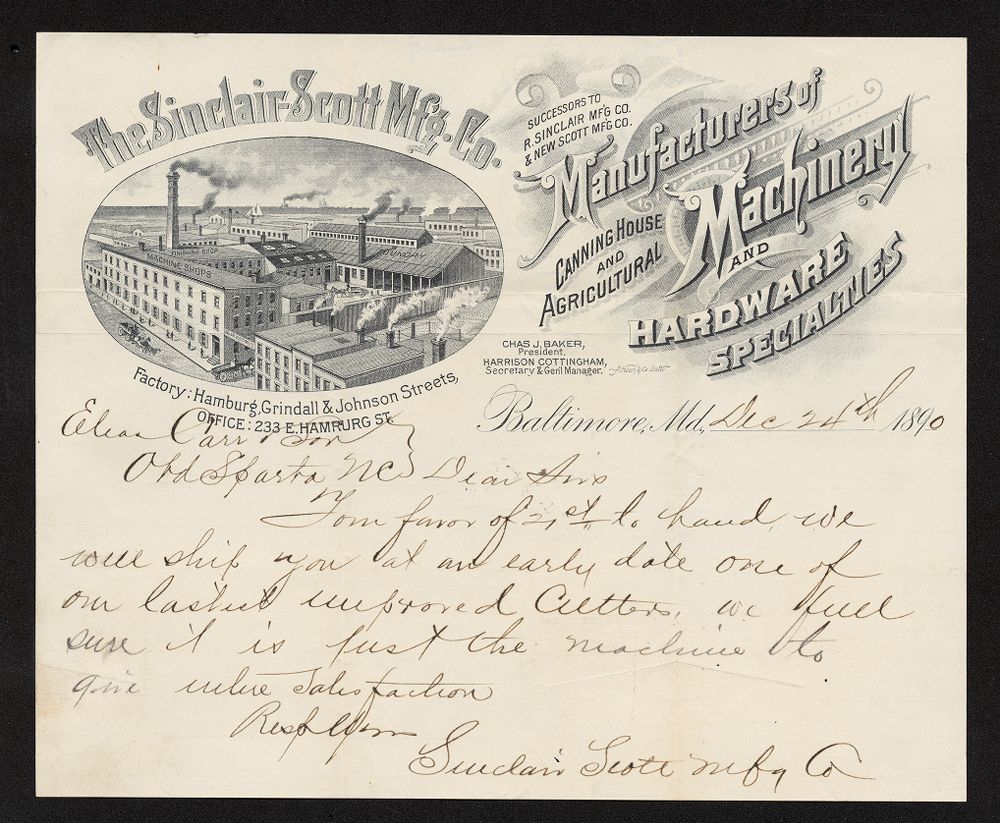 The Sinclair-Scott Mf'g. Co.
SUCCESSORS TO
R. SINCLAIR MF'G CO.
& NEW SCOTT MF'G CO.
Manufacturers of
CANNING HOUSE
AND
AGRICULTURAL
Machinery
AND
HARDWARE
SPECIALTIES
FINISHING SHOP
MACHINE SHOPS
FOUNDRY
CHAS J. BAKER,
President.
HARRISON COTTINGHAM,
Secretary & Gen'l Manager.
A. Hoen & Co. Balto.
Factory: Hamburg, Grindall & Johnson Streets,
OFFICE: 233 E. HAMRURG ST.
Baltimore, Md., Dec 24th 1890
Elias Carr & Son
Old Sparta NC Dear Sirs
Your favor of 21st to hand, we
will ship you at an early date one of
our lastest improved Cutters, we fuel
sure it is just the machine to
give entire Satisfaction
Resp Yours
Sinclair Scott Mfg Co